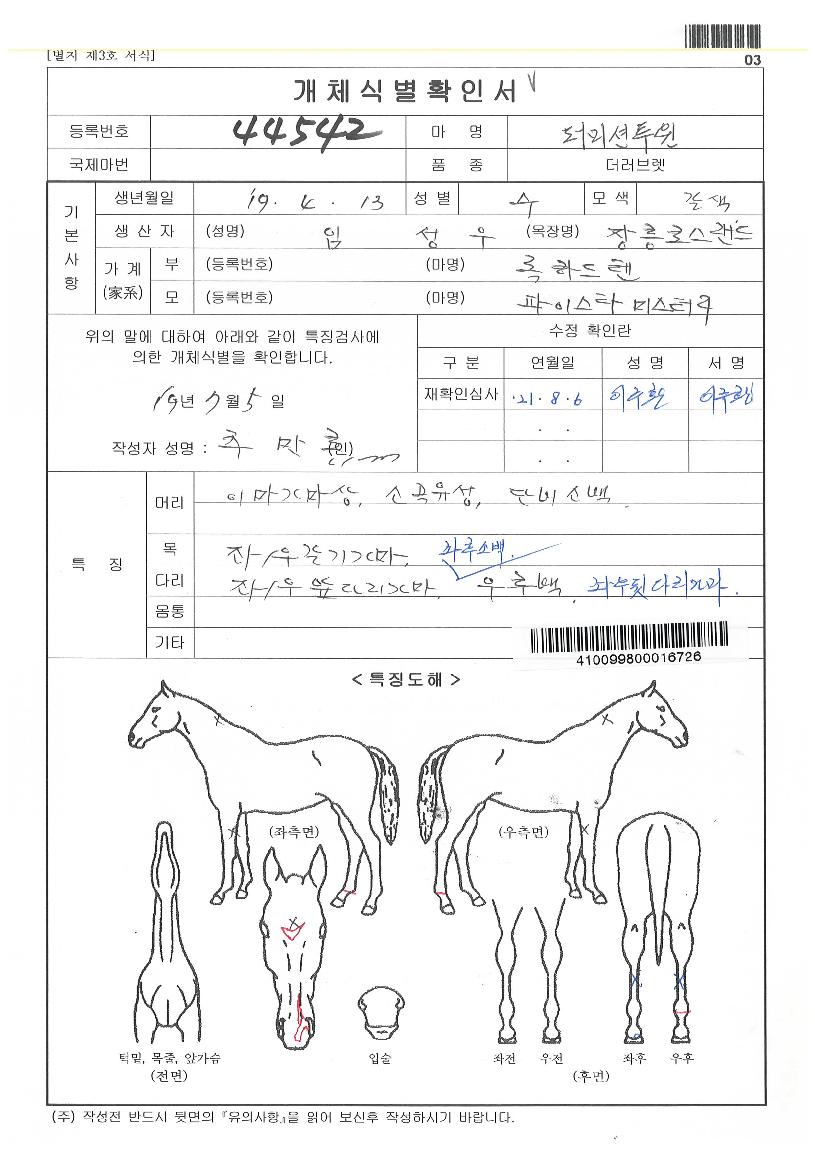 [별지 제3호 서식]
03
개체식별확인서
등록번호 44542 마 명 터피션투원
국제마번 품 종 더러브렛
기본사항
생년월일 '19. 4. 13 성 별 수 모 색 갈색
생 산 자 (성명) 임 성 우 (목장명) 장흥호스랜드
가 계 (家系) 부 (등록번호) (마명) 록하드텐
모 (등록번호) (마명) 파이스타미스터리
위의 말에 대하여 아래와 같이 특징검사에
의한 개체식별을 확인합니다.
19년 7월 5일
작성자 성명 : 추 만 (인)
수정 확인란
구 분 연월일 성 명 서 명
재확인심사 '21. 8. 6
. .
. .
특 징
머리 이마가마상, 소곡유성, 단비소백.
목 좌/우갈기가마, 좌후소백.
다리 좌/우앞다리가마, 우후백, 좌우뒷다리가마.
몸통
기타
410099800016726
< 특징도해 >
(좌측면) (우측면)
턱밑, 목줄, 앞가슴 입술 좌전 우전 좌후 우후
(전면) (후면)
(주) 작성전 반드시 뒷면의 『유의사항』을 읽어 보신후 작성하시기 바랍니다.